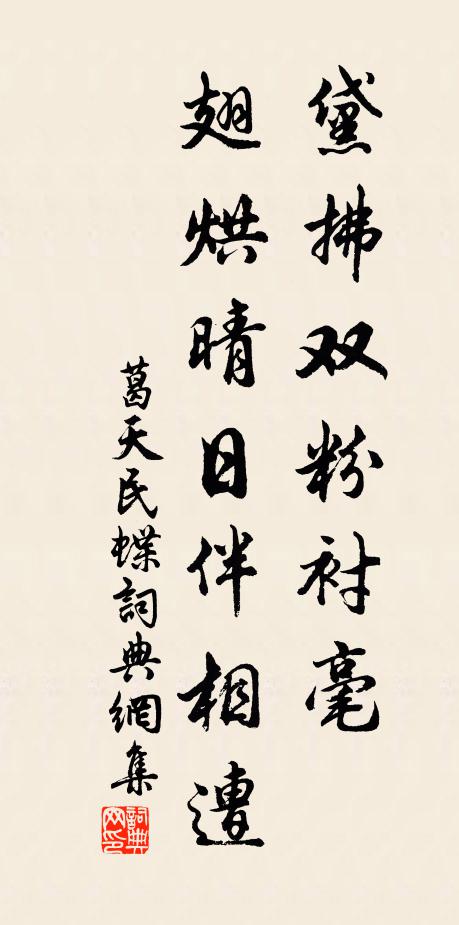 黛拂双粉衬毫
翅烘晴日伴相遭
葛天民蝶詞典網集
詞典网印